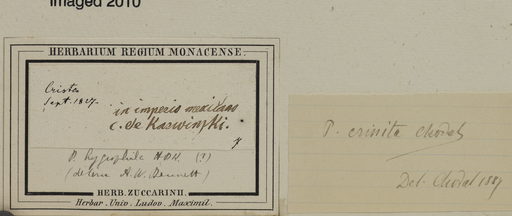 Imaged 2010
HERBARIUM REGIUM MONACENSE.
Cristo
Sept. 1827.
in imperio mexicano
C. de Karwinski.
P. hygrophila H.B.K. (?)
(determ A. W. Bennett)
HERB. ZUCCARINII.
Herbar. Univ. Ludov. Maximil.
P. crinita Chodat
Det. Chodat 1887